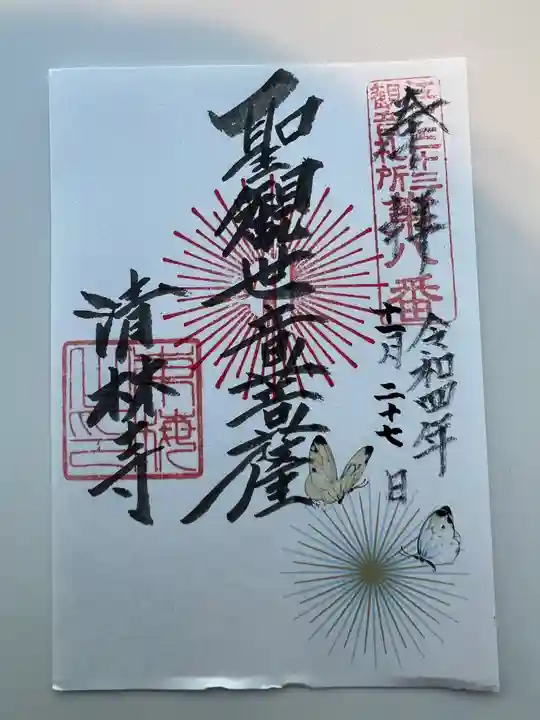 奉拝
江戸三十三
観音札所第八番
令和四年
十一月二十七日
聖観世音菩薩
清林寺